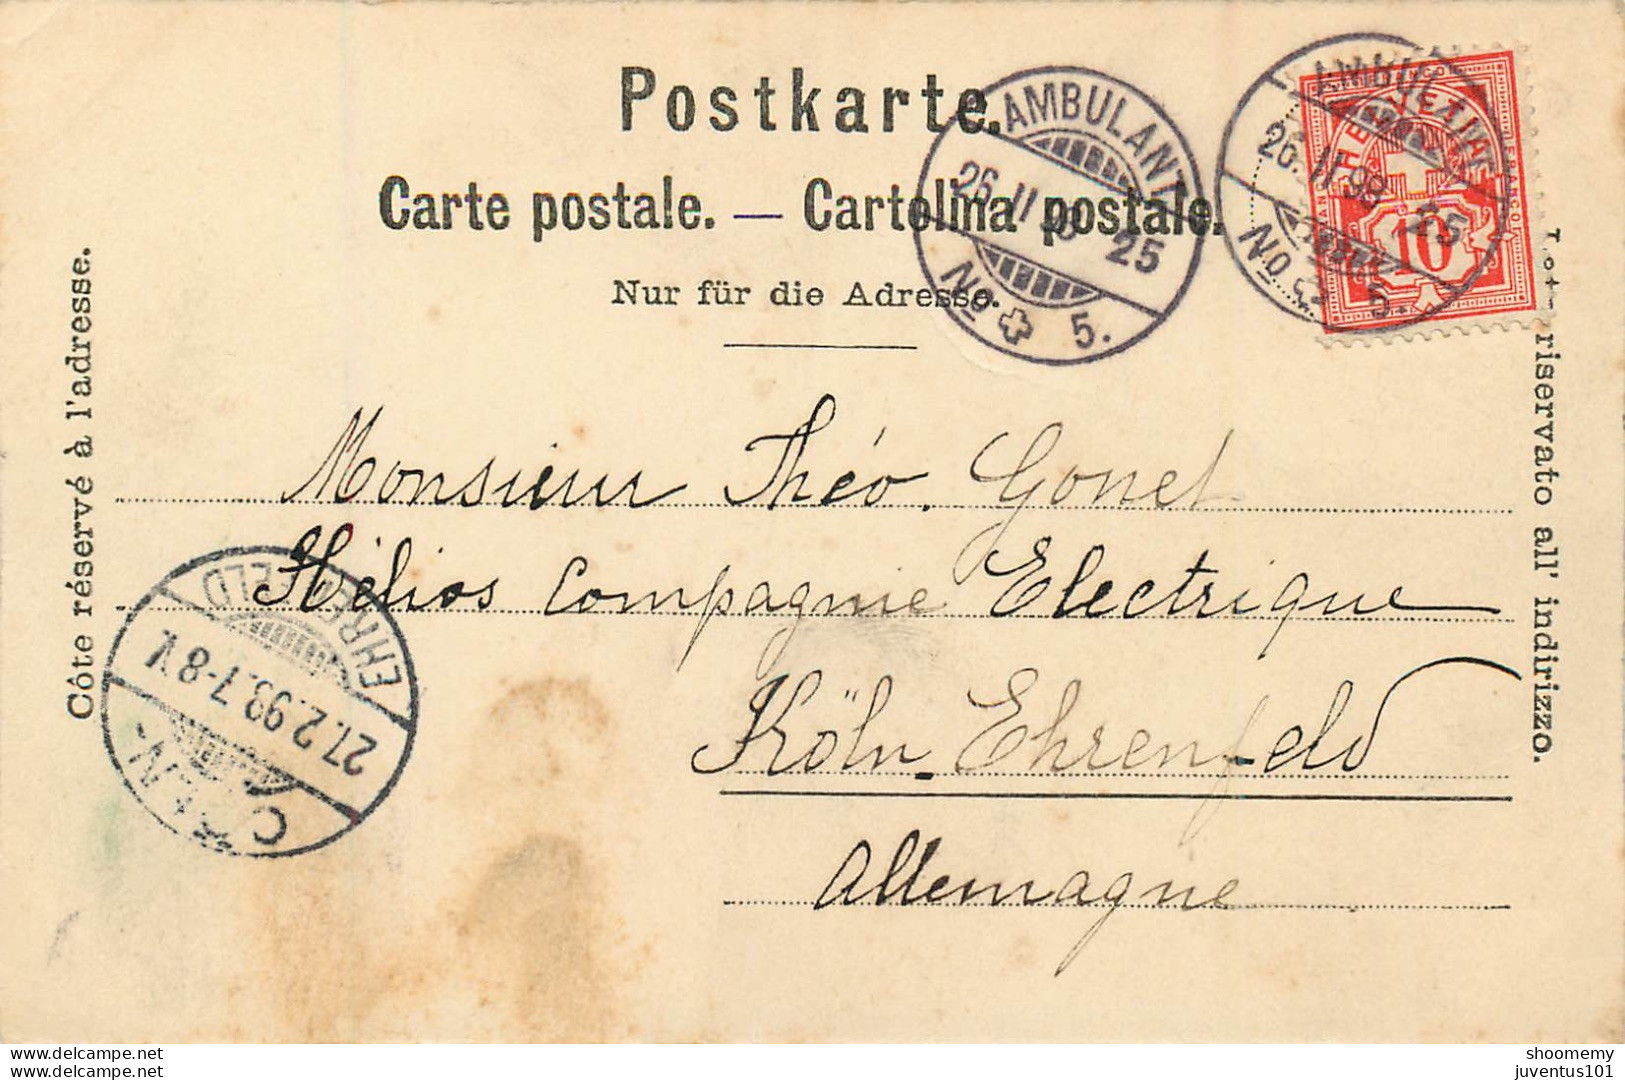 Postkarte.
Carte postale. — Cartolina postale.
Nur für die Adresse.
Côte réservé à l'adresse.
riservato all' indirizzo.
AMBULANT
26. II 98 25
No 5.
AMBULANT
26. II 98 25
No 5.
HELVETIA
FRANCO
10
Monsieur Théo. Gonet
Hélios Compagnie Electrique
Köln-Ehrenfeld
Allemagne
CÖLN-
27.2.98.7-8V.
EHRENFELD
www.delcampe.com
www.delcampe.com
shoomemy
juventus101